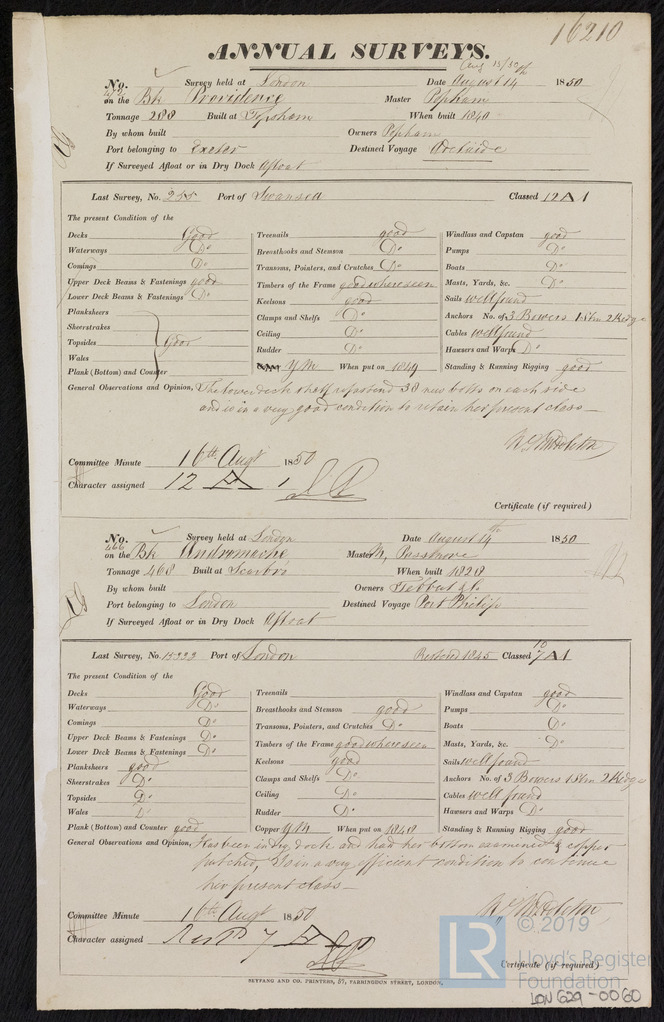 16210
ANNUAL SURVEYS.
Aug 15/50
No. Survey held at London Date August 14 1850
on the Bk Providence Master Popham
Tonnage 288 Built at Topsham When built 1840
By whom built Owners Popham
Port belonging to Exeter Destined Voyage Adelaide
If Surveyed Afloat or in Dry Dock Afloat
Last Survey, No. 255 Port of Swansea Classed 12 A 1
The present Condition of the
Decks Good Treenails good Windlass and Capstan good
Waterways Do Breasthooks and Stemson Do Pumps Do
Comings Do Transoms, Pointers, and Crutches Do Boats Do
Upper Deck Beams & Fastenings good Timbers of the Frame good where seen Masts, Yards, &c. Do
Lower Deck Beams & Fastenings Do Keelsons good Sails well found
Planksheers Clamps and Shelfs Do Anchors No. of 3 Bowers 1 Stm 2 Kedge
Sheerstrakes Ceiling Do Cables well found
Topsides Good Rudder Do Hawsers and Warps Do
Wales YM When put on 1849 Standing & Running Rigging good
Plank (Bottom) and Counter
General Observations and Opinion, The lower deck shelf refastend 38 new bolts on each side
and is in a very good condition to retain her present class
Wm Middleton
Committee Minute 16th Augt 1850
Character assigned 12 A 1
Certificate (if required)
No. Survey held at London Date August 14th 1850
466
on the Bk Andromache Master M, Passmore
Tonnage 468 Built at Scarbro When built 1828
By whom built Owners Tebbut & Co
Port belonging to London Destined Voyage Port Philip
If Surveyed Afloat or in Dry Dock Afloat
Last Survey, No. 15333 Port of London Restored 1845 Classed 7 A 1
10
The present Condition of the
Decks Good Treenails Windlass and Capstan good
Waterways Do Breasthooks and Stemson good Pumps Do
Comings Do Transoms, Pointers, and Crutches Do Boats Do
Upper Deck Beams & Fastenings Do Timbers of the Frame good where seen Masts, Yards, &c. Do
Lower Deck Beams & Fastenings Do Keelsons good Sails well found
Planksheers good Clamps and Shelfs Do Anchors No. of 3 Bowers 1 Stm 2 Kedge
Sheerstrakes Do Ceiling Do Cables well found
Topsides Do Rudder Do Hawsers and Warps Do
Wales Do Copper YM When put on 1848 Standing & Running Rigging good
Plank (Bottom) and Counter good
General Observations and Opinion, Has been in dry dock and had her bottom examined & copper
patched, Is in a very efficient condition to continue
her present class
Wm Middleton
Committee Minute 16th Augt 1850
Character assigned 7 A 1
Certificate (if required)
SEYFANG AND CO. PRINTERS, 57, FARRINGDON STREET, LONDON.
LR © 2019
Lloyd's Register
Foundation
LON629-0060